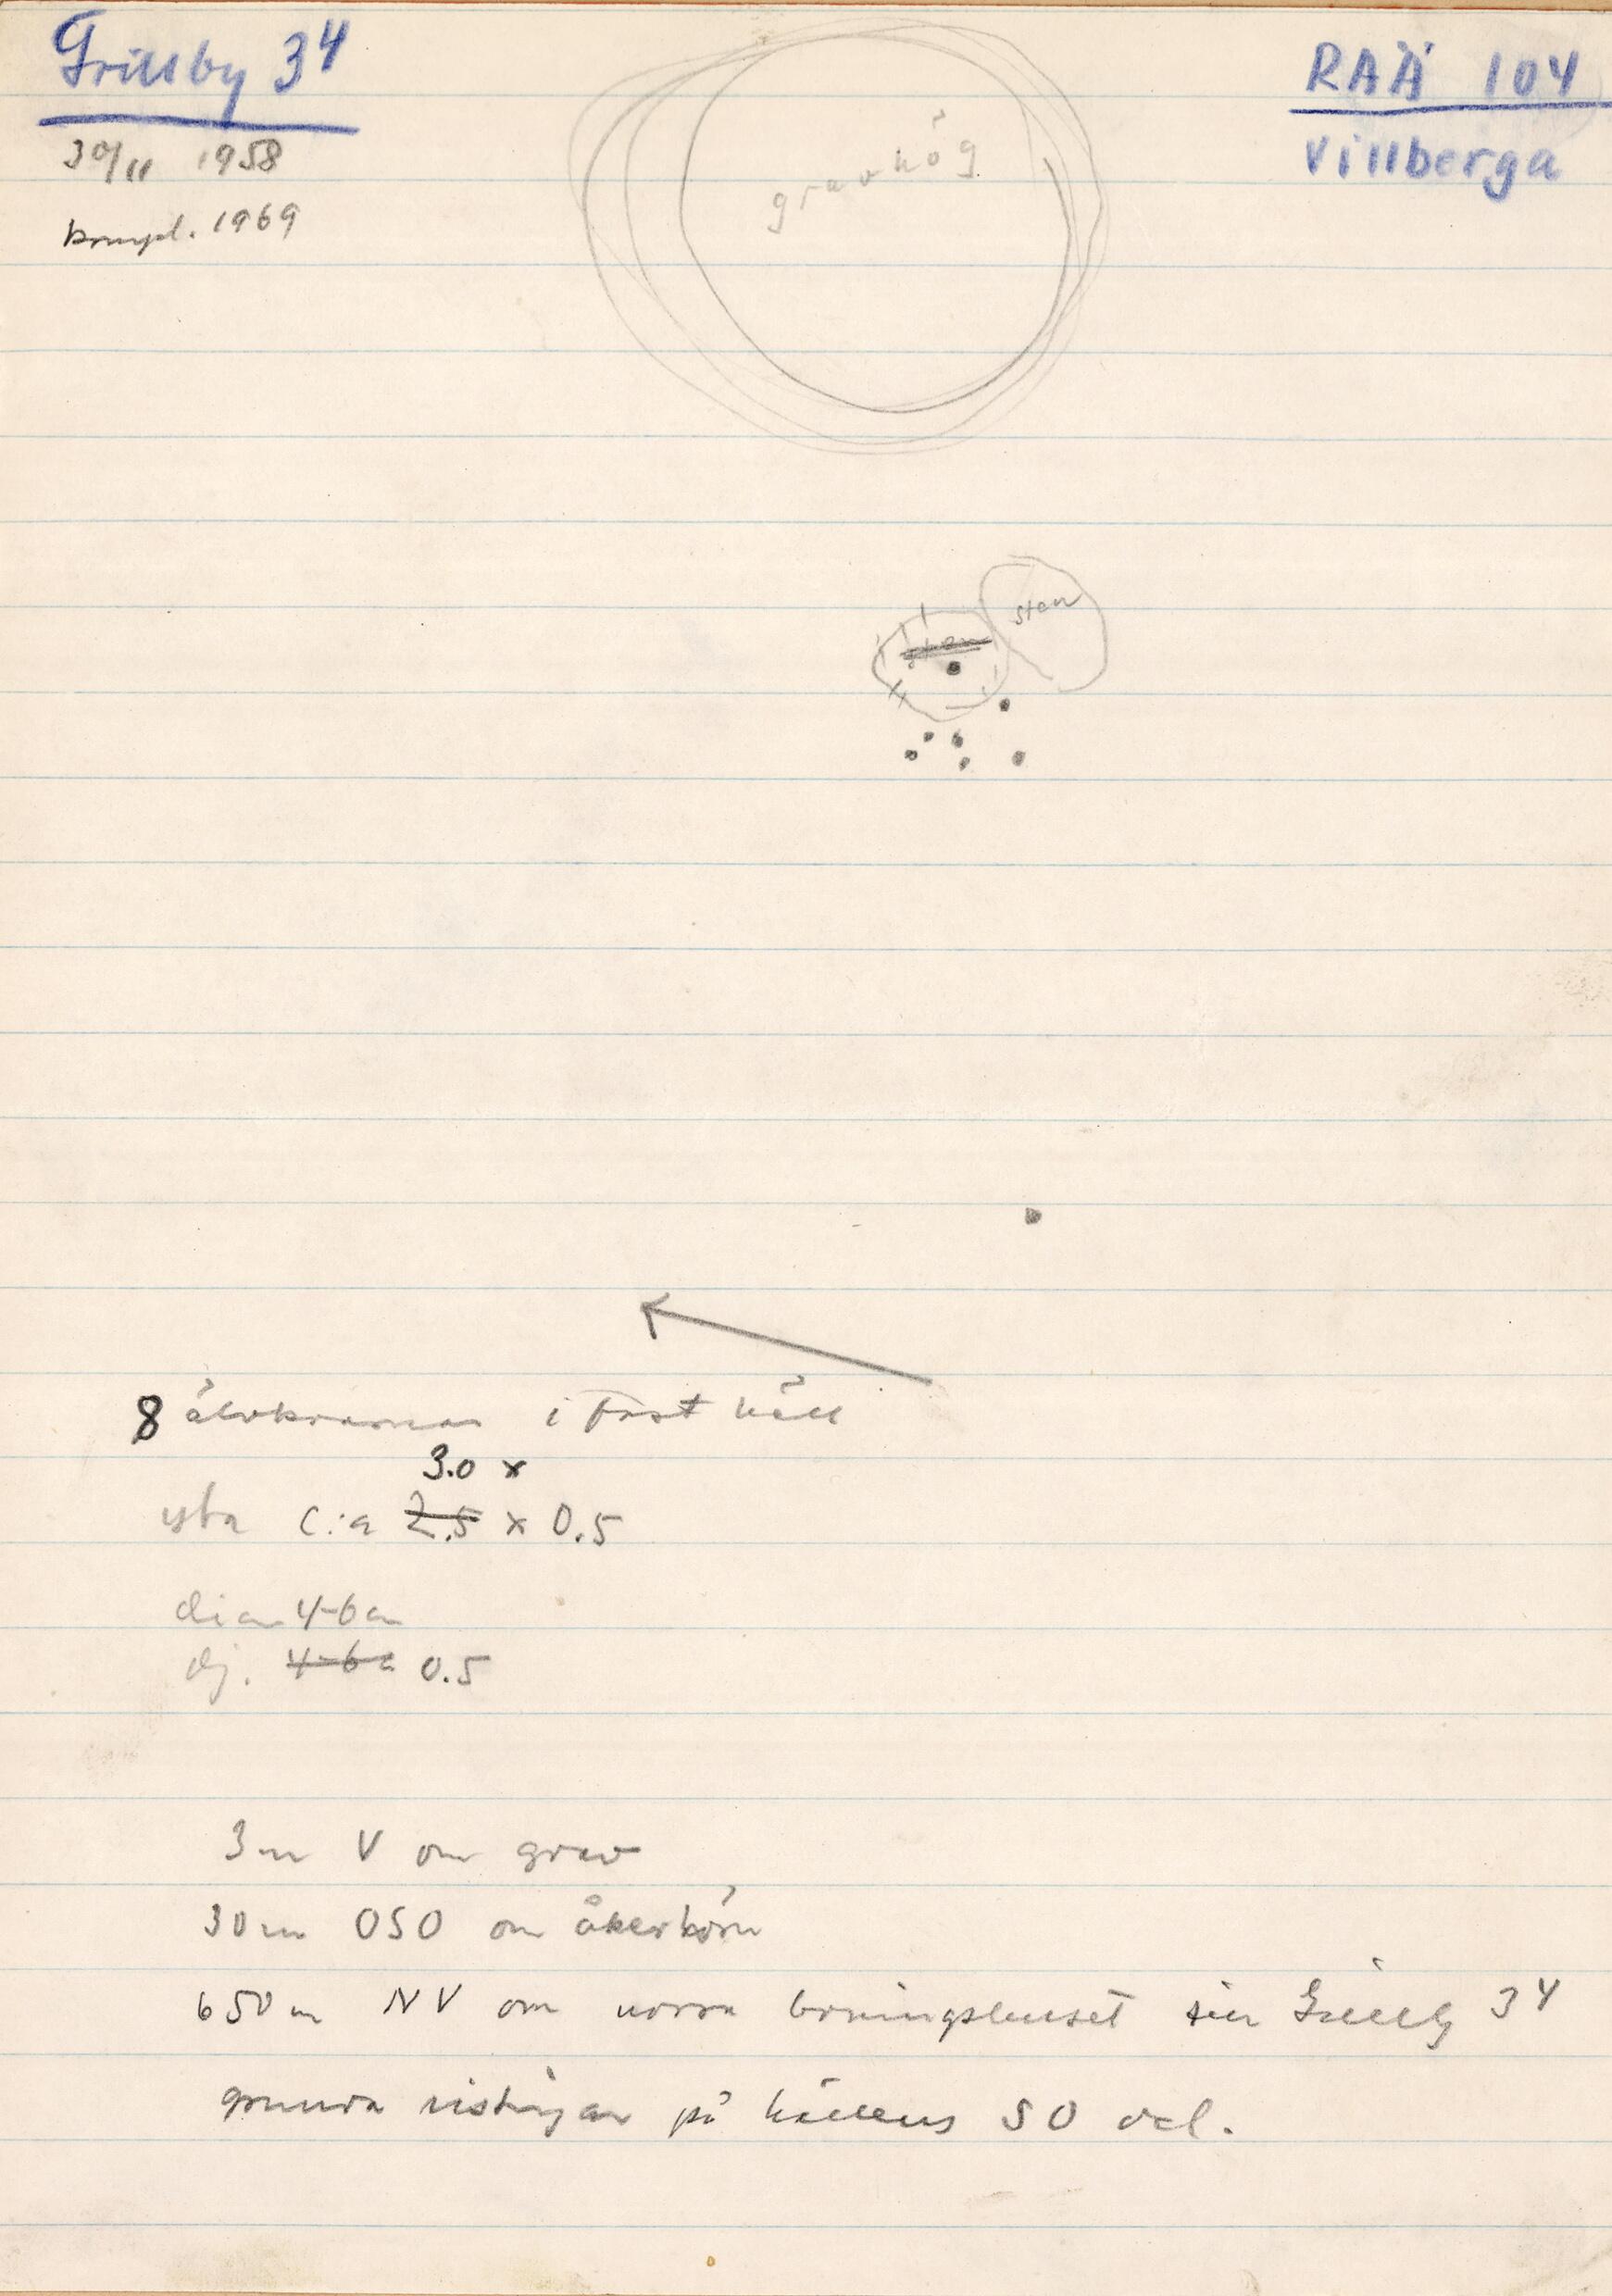 Grillby 34
RAÄ 104
30/11 1958
Villberga
kompl. 1969
gravhög
sten
sten
8 älvkvarnar i fast häll
3.0 x
yta c:a 2.5 x 0.5
diam 4-6 cm
dj. 4-6 c 0.5
3 m V om grav
30 m OSO om åkerhörn
650 m NV om norra boningshuset till Grillby 34
grunda ristningar på hällens SO del.